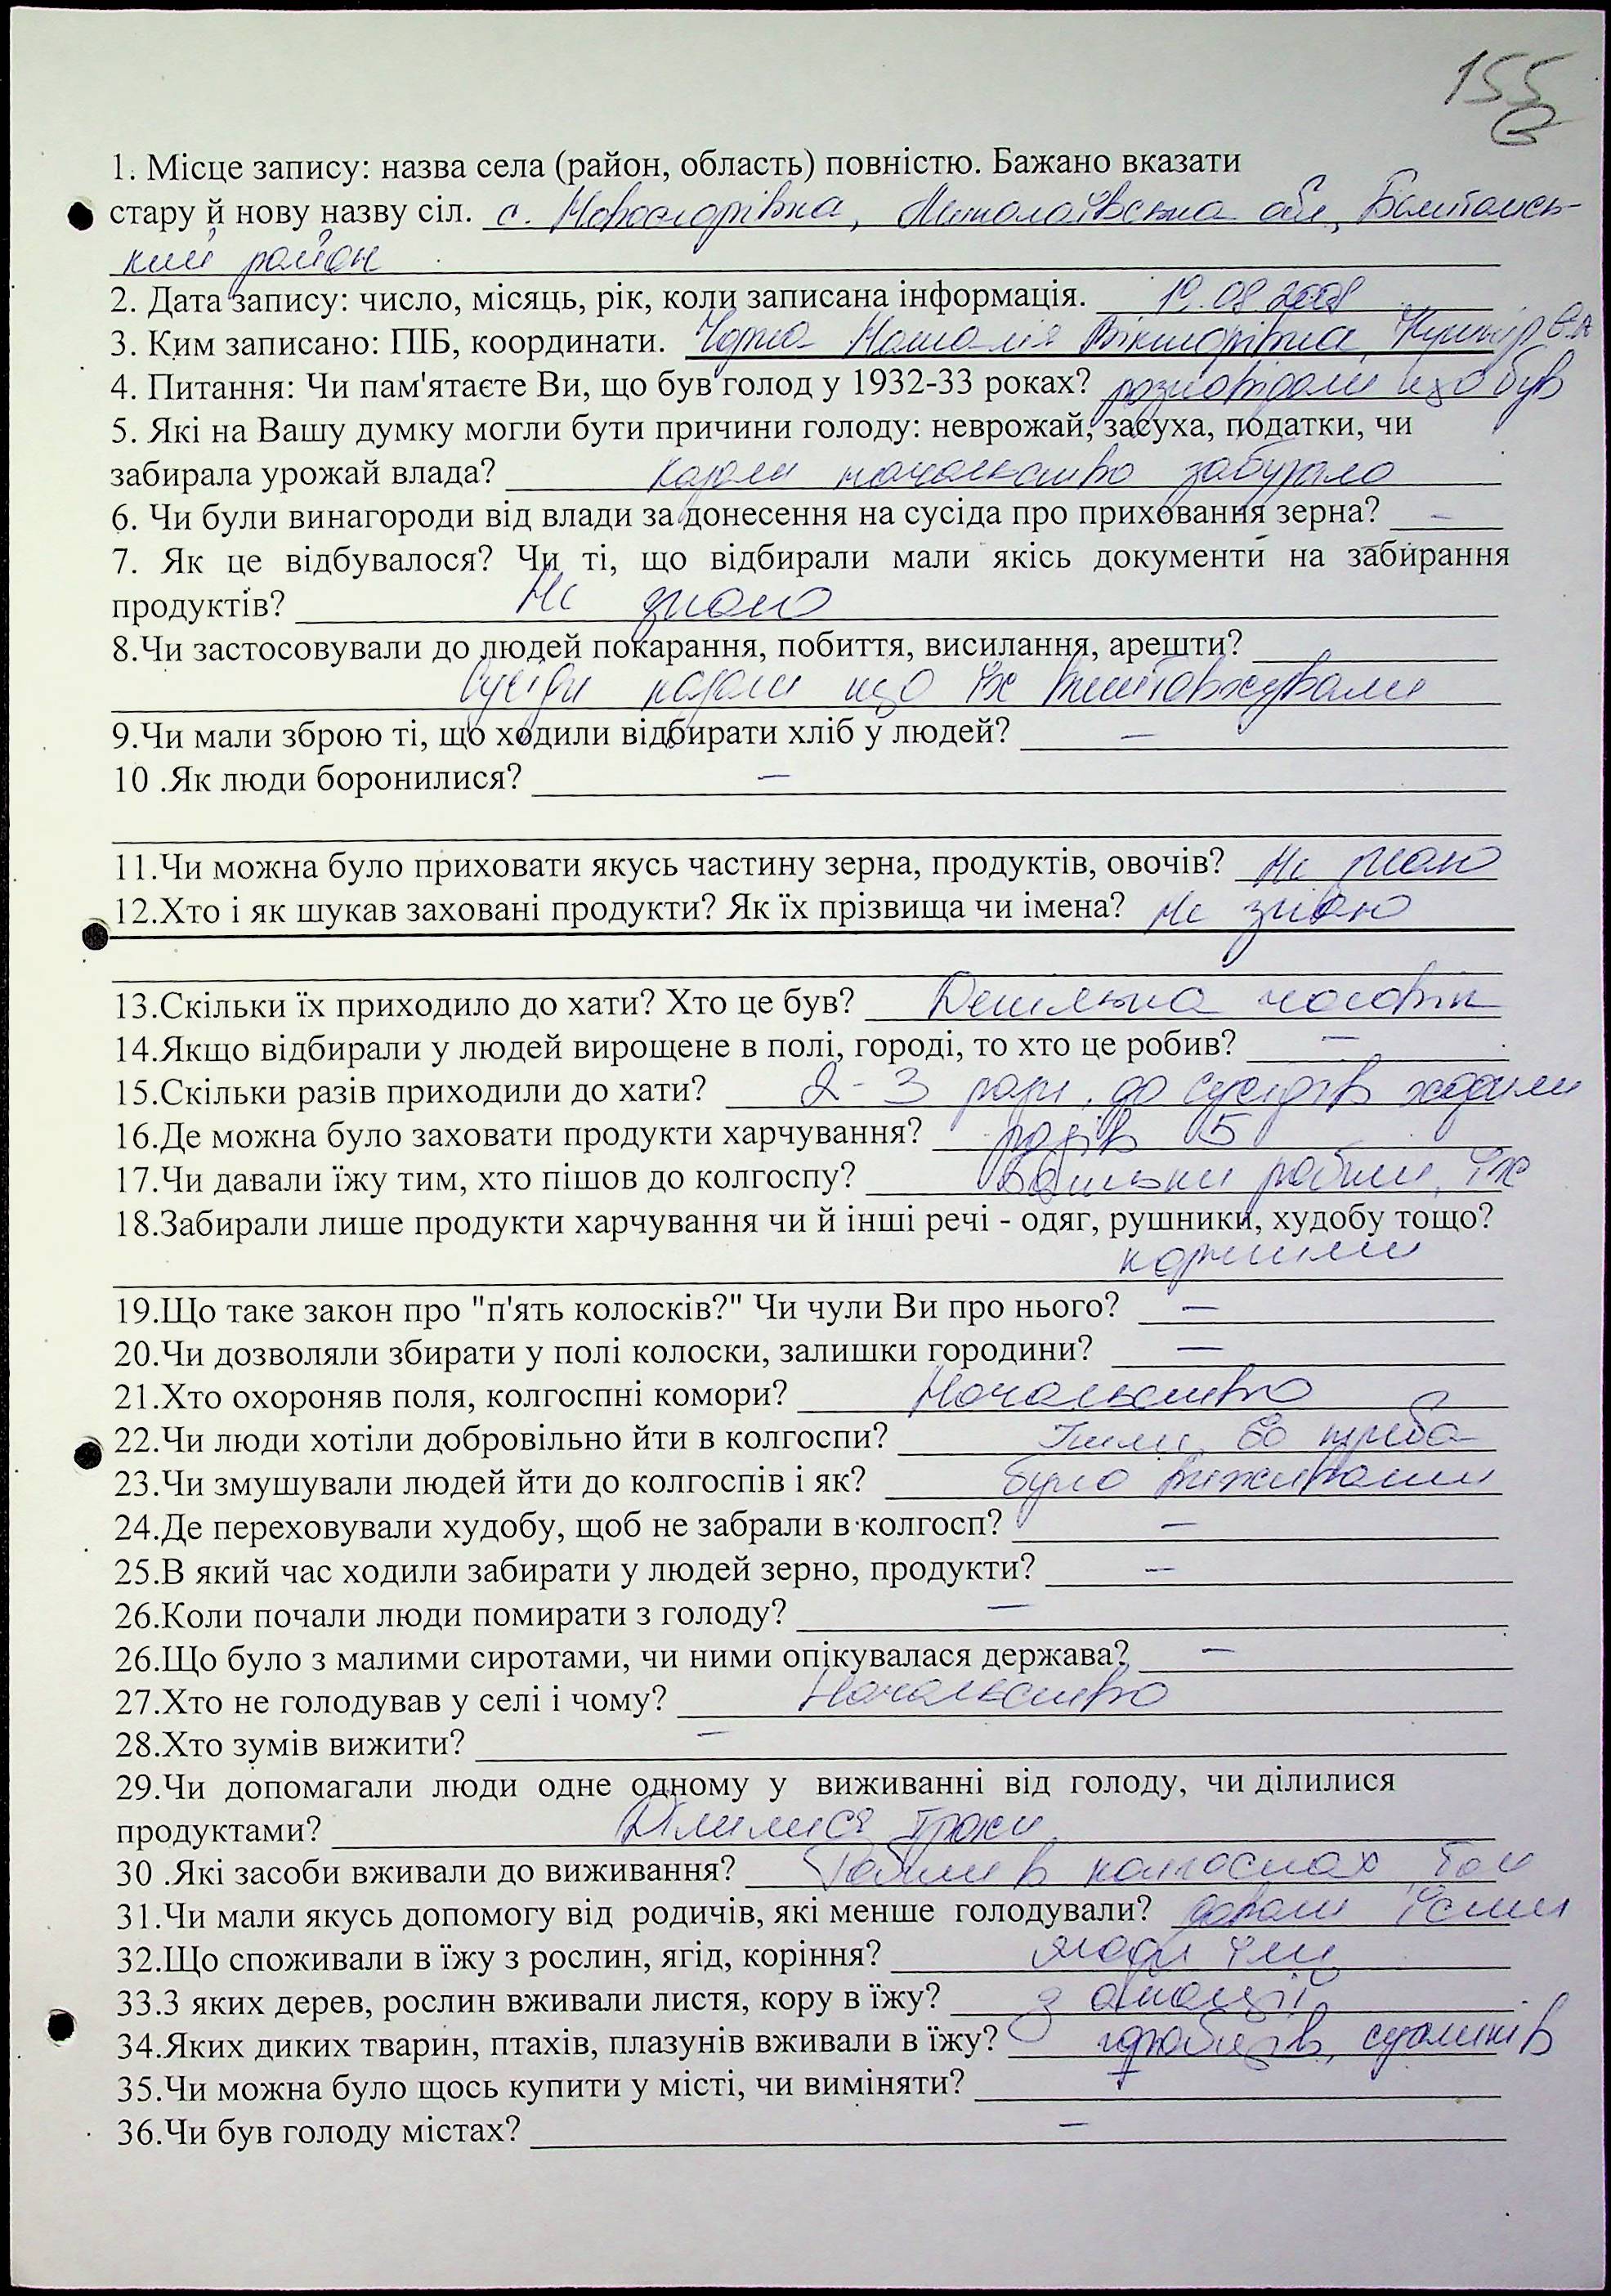 155
1. Місце запису: назва села (район, область) повністю. Бажано вказати
стару й нову назву сіл. с. Новоєгорівка, Миколаївська обл, Баштансь-
кий район
2. Дата запису: число, місяць, рік, коли записана інформація. 19.08.2008
3. Ким записано: ПІБ, координати. Чорна Наталія Вікторівна, Кушнір
4. Питання: Чи пам'ятаєте Ви, що був голод у 1932-33 роках? розповідали що був
5. Які на Вашу думку могли бути причини голоду: неврожай, засуха, податки, чи
забирала урожай влада? казали начальство забирало
6. Чи були винагороди від влади за донесення на сусіда про приховання зерна? –
7. Як це відбувалося? Чи ті, що відбирали мали якісь документи на забирання
продуктів? Не знаю
8.Чи застосовували до людей покарання, побиття, висилання, арешти?
Сусіди казали що їх виштовхували
9.Чи мали зброю ті, що ходили відбирати хліб у людей? –
10 .Як люди боронилися? –
11.Чи можна було приховати якусь частину зерна, продуктів, овочів? Не знаю
12.Хто і як шукав заховані продукти? Як їх прізвища чи імена? Не знаю
13.Скільки їх приходило до хати? Хто це був? Декілька чоловік
14.Якщо відбирали у людей вирощене в полі, городі, то хто це робив? –
15.Скільки разів приходили до хати? 2-3 рази, до сусідів ходили
16.Де можна було заховати продукти харчування? разів 5
17.Чи давали їжу тим, хто пішов до колгоспу? Батьки робили, їх
18.Забирали лише продукти харчування чи й інші речі - одяг, рушники, худобу тощо?
кормили
19.Що таке закон про "п'ять колосків?" Чи чули Ви про нього? –
20.Чи дозволяли збирати у полі колоски, залишки городини? –
21.Хто охороняв поля, колгоспні комори? Начальство
22.Чи люди хотіли добровільно йти в колгоспи? Йшли, бо треба
23.Чи змушували людей йти до колгоспів і як? було виживати
24.Де переховували худобу, щоб не забрали в колгосп? –
25.В який час ходили забирати у людей зерно, продукти? –
26.Коли почали люди помирати з голоду? –
26.Що було з малими сиротами, чи ними опікувалася держава? –
27.Хто не голодував у селі і чому? Начальство
28.Хто зумів вижити? –
29.Чи допомагали люди одне одному у виживанні від голоду, чи ділилися
продуктами? Ділилися трохи
30 .Які засоби вживали до виживання? Робили в колгоспах, там
31.Чи мали якусь допомогу від родичів, які менше голодували? давали їсти
32.Що споживали в їжу з рослин, ягід, коріння? ягоди їли
33.З яких дерев, рослин вживали листя, кору в їжу? з акації
34.Яких диких тварин, птахів, плазунів вживали в їжу? горобців, сусликів
35.Чи можна було щось купити у місті, чи виміняти? –
36.Чи був голоду містах? –